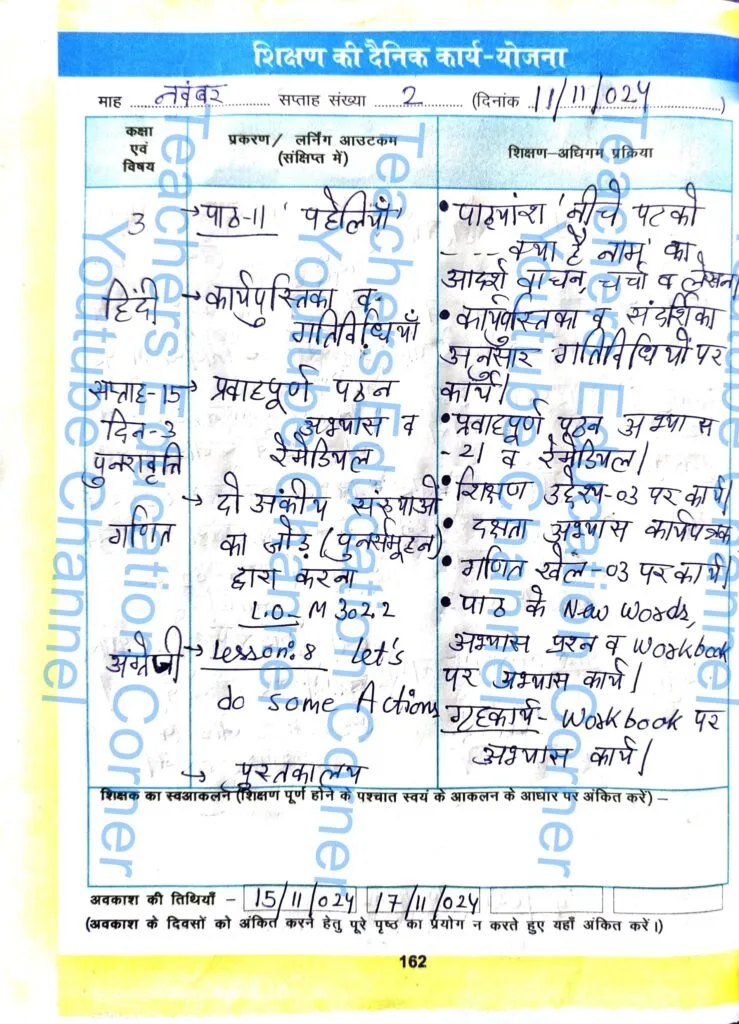 शिक्षण की दैनिक कार्य-योजना
माह नवंबर सप्ताह संख्या 2 (दिनांक 11/11/024)
कक्षा
एवं
विषय
प्रकरण/ लर्निंग आउटकम
(संक्षिप्त में)
शिक्षण-अधिगम प्रक्रिया
3
हिंदी
सप्ताह-15
दिन-3
पुनरावृत्ति
गणित
अंग्रेजी
→ पाठ-11 'पहेलियाँ'
→ कार्यपुस्तिका व
गतिविधियाँ
→ प्रवाहपूर्ण पठन
अभ्यास व
रेमेडियल
→ दो अंकीय संख्याओं
का जोड़ (पुनर्समूहन)
द्वारा करना
L.O- M 302.2
→ Lesson: 8 Let's
do some Actions
→ पुस्तकालय
• पाठ्यांश 'नीचे पटको
---- क्या है नाम' का
आदर्श वाचन, चर्चा व लेखन।
• कार्यपुस्तिका व संदर्शिका
अनुसार गतिविधियों पर
कार्य।
• प्रवाहपूर्ण पठन अभ्यास
-21 व रेमेडियल।
• शिक्षण उद्देश्य-03 पर कार्य।
• दक्षता अभ्यास कार्यपत्रक
• गणित खेल-03 पर कार्य।
• पाठ के New words,
अभ्यास प्रश्न व workbook
पर अभ्यास कार्य।
गृहकार्य- Workbook पर
अभ्यास कार्य।
शिक्षक का स्वआकलन (शिक्षण पूर्ण होने के पश्चात स्वयं के आकलन के आधार पर अंकित करें) –
अवकाश की तिथियाँ – 15/11/024 17/11/024
(अवकाश के दिवसों को अंकित करने हेतु पूरे पृष्ठ का प्रयोग न करते हुए यहाँ अंकित करें।)
162
Teachers Education Corner
Youtube Channel
Teachers Education Corner
Youtube Channel
Teachers Education Corner
Youtube Channel